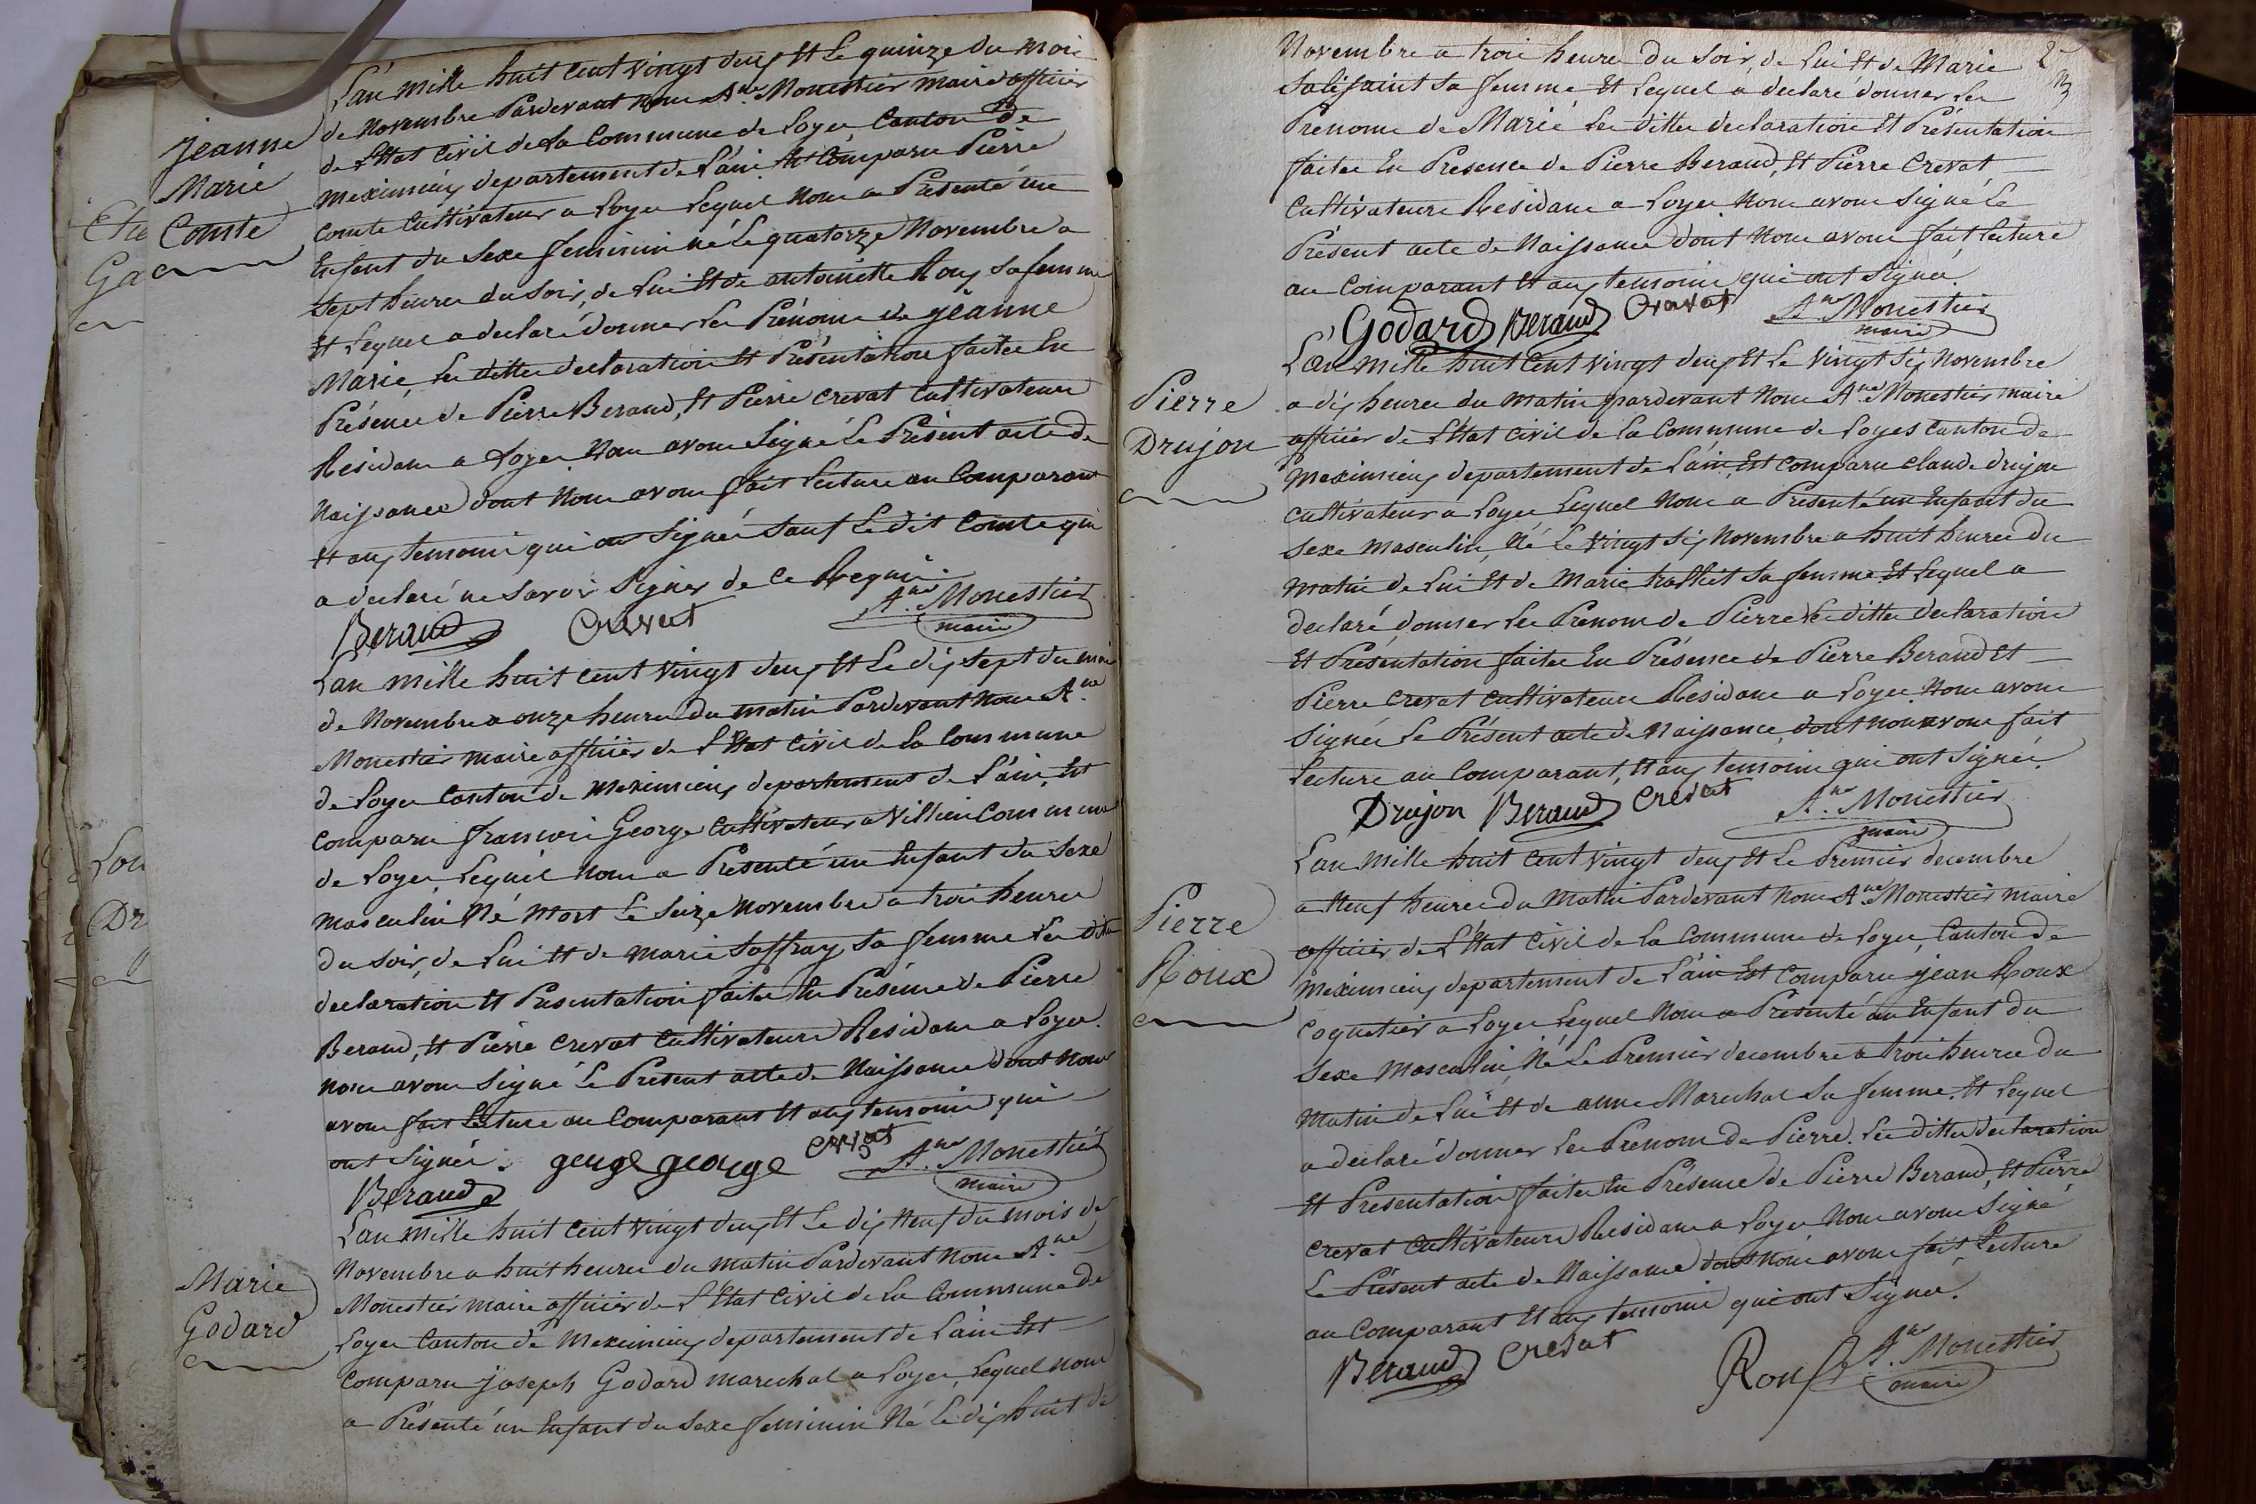 Jeanne
Marie
Comte
L'an mille huit cent vingt deux Et le quinze du mois
de Novembre Pardevant nous A.ne Monestier maire officier
de L'Etat Civil de la Commune de Loyes Canton de
meximieux departement de L'ain Est Comparu Pierre
Comte Cultivateur a Loyes Lequel nous a Présenté un
Enfant du Sexe feminin né Le quatorze Novembre a
Sept heures du Soir, de Lui Et de antoinette Roux Sa femme
Et Lequel a declaré donner Les Prénoms de jeanne
Marie, Les dittes declaration Et Présentation faites En
Présence de Pierre Beraud, Et Pierre Crevat Cultivateurs
Residans a Loyes Nous avons Signé Le Présent acte de
Naissance dont Nous avons fait Lecture au Comparant
Et aux temoins qui on Signés Sauf Le dit Comte qui
a declaré ne Savoir Signer de ce Requis.
Beraud Crevat A.ne Monestier
maire
L'an mille huit cent vingt deux Et Le dix Sept du mois
de Novembre a onze heures du matin Pardevant Nous A.ne
Monestier maire officier de L'Etat Civil de La Commune
de Loyes Canton de meximieux departement de L'ain, Est
Comparu francois George Cultivateur a Villieu Commune
de Loyes Lequel Nous a Présenté un Enfant du Sexe
masculin Né Mort Le Seize Novembre a trois heures
du Soir, de Lui Et de marie Soffray Sa femme Les dittes
declaration Et Présentation faites En Présence de Pierre
Beraud, Et Pierre Crevat Cultivateurs Residans a Loyes
Nous avons Signé Le Présent acte de Naissance dont Nous
avons fait Lecture au Comparant Et aux temoins qui
ont Signés. george Crevat A.ne Monestier
Beraud maire
Marie
Godard
L'an Mille huit cent vingt deux Et Le dix Neuf du mois de
Novembre a huit heures du matin Pardevant Nous A.ne
Monestier maire officier de L'Etat Civil de La Commune de
Loyes Canton de Meximieux departement de L'ain Est
Comparu joseph Godard marechal a Loyes, Lequel Nous
a Présenté un Enfant du Sexe feminin Né Le dix huit de
Novembre a trois heures du Soir, de Lui Et de Marie
Salisaint Sa femme Et Lequel a declaré donner Les
Prenoms de Marie Les dittes declaration Et Présentation
faites En Presence de Pierre Beraud, Et Pierre Crevat
Cultivateurs Residans a Loyes Nous avons Signé Le
Présent acte de Naissance dont Nous avons fait Lecture
au Comparant Et aux temoins qui ont Signés.
Godard Beraud Crevat A.ne Monestier
maire
Pierre
Drujon
L'an mille huit Cent vingt deux Et Le vingt Six Novembre
a dix heures du matin pardevant Nous A.ne Monestier maire
officier de L'Etat Civil de La Commune de Loyes Canton de
Meximieux departement de L'ain, Est Comparu Claude drujon
Cultivateur a Loyes Lequel Nous a Présenté un Enfant du
Sexe masculin, Né Le vingt Six Novembre a huit heures du
matin de Lui Et de Marie Sa femme Et Lequel a
declaré donner Les Prenoms de Pierre Les dittes declaration
Et Présentation faites En Présence de Pierre Beraud Et
Pierre Crevat Cultivateurs Residans a Loyes Nous avons
Signés Le Présent acte de Naissance, dont nous avons fait
Lecture au Comparant, Et aux temoins qui ont Signés.
Drujon Beraud Crevat A.ne Monestier
maire
Pierre
Roux
L'an mille huit Cent vingt deux Et Le Premier decembre
a Neuf heures du Matin Pardevant Nous A.ne Monestier maire
officier de L'Etat Civil de La Commune de Loyes, Canton de
Meximieux departement de L'ain Est Comparu jean Roux
Coquetier a Loyes Lequel Nous a Présenté un Enfant du
Sexe Masculin, Né Le Premier decembre a trois heures du
Matin de Lui Et de anne Marechal Sa femme. Et Lequel
a declaré donner Les Prenoms de Pierre. Les dittes declaration
Et Présentation faites En Présence de Pierre Beraud, Et Pierre
Crevat Cultivateurs Residans a Loyes Nous avons Signé
Le Présent acte de Naissance dont Nous avons fait Lecture
au Comparant Et aux temoins qui ont Signés.
Beraud Crevat Roux A.ne Monestier
maire